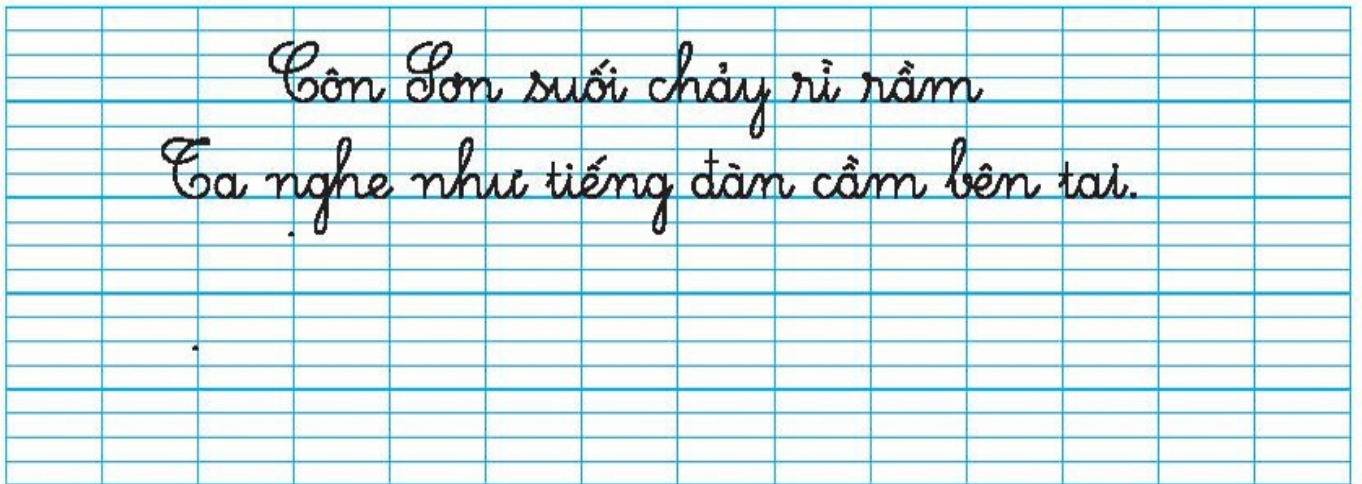 Côn Sơn suối chảy rì rầm
Ta nghe như tiếng đàn cầm bên tai.